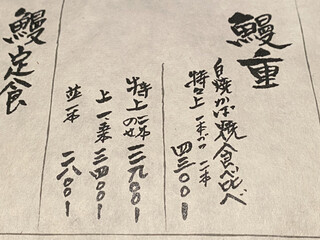 鰻重
白焼かば焼食べ比べ
特々上 一本づつ 二本
四三〇〇ー
特上 二本のせ 三九〇〇ー
上 一本 三四〇〇ー
並 一本 二八〇〇ー
鰻定食